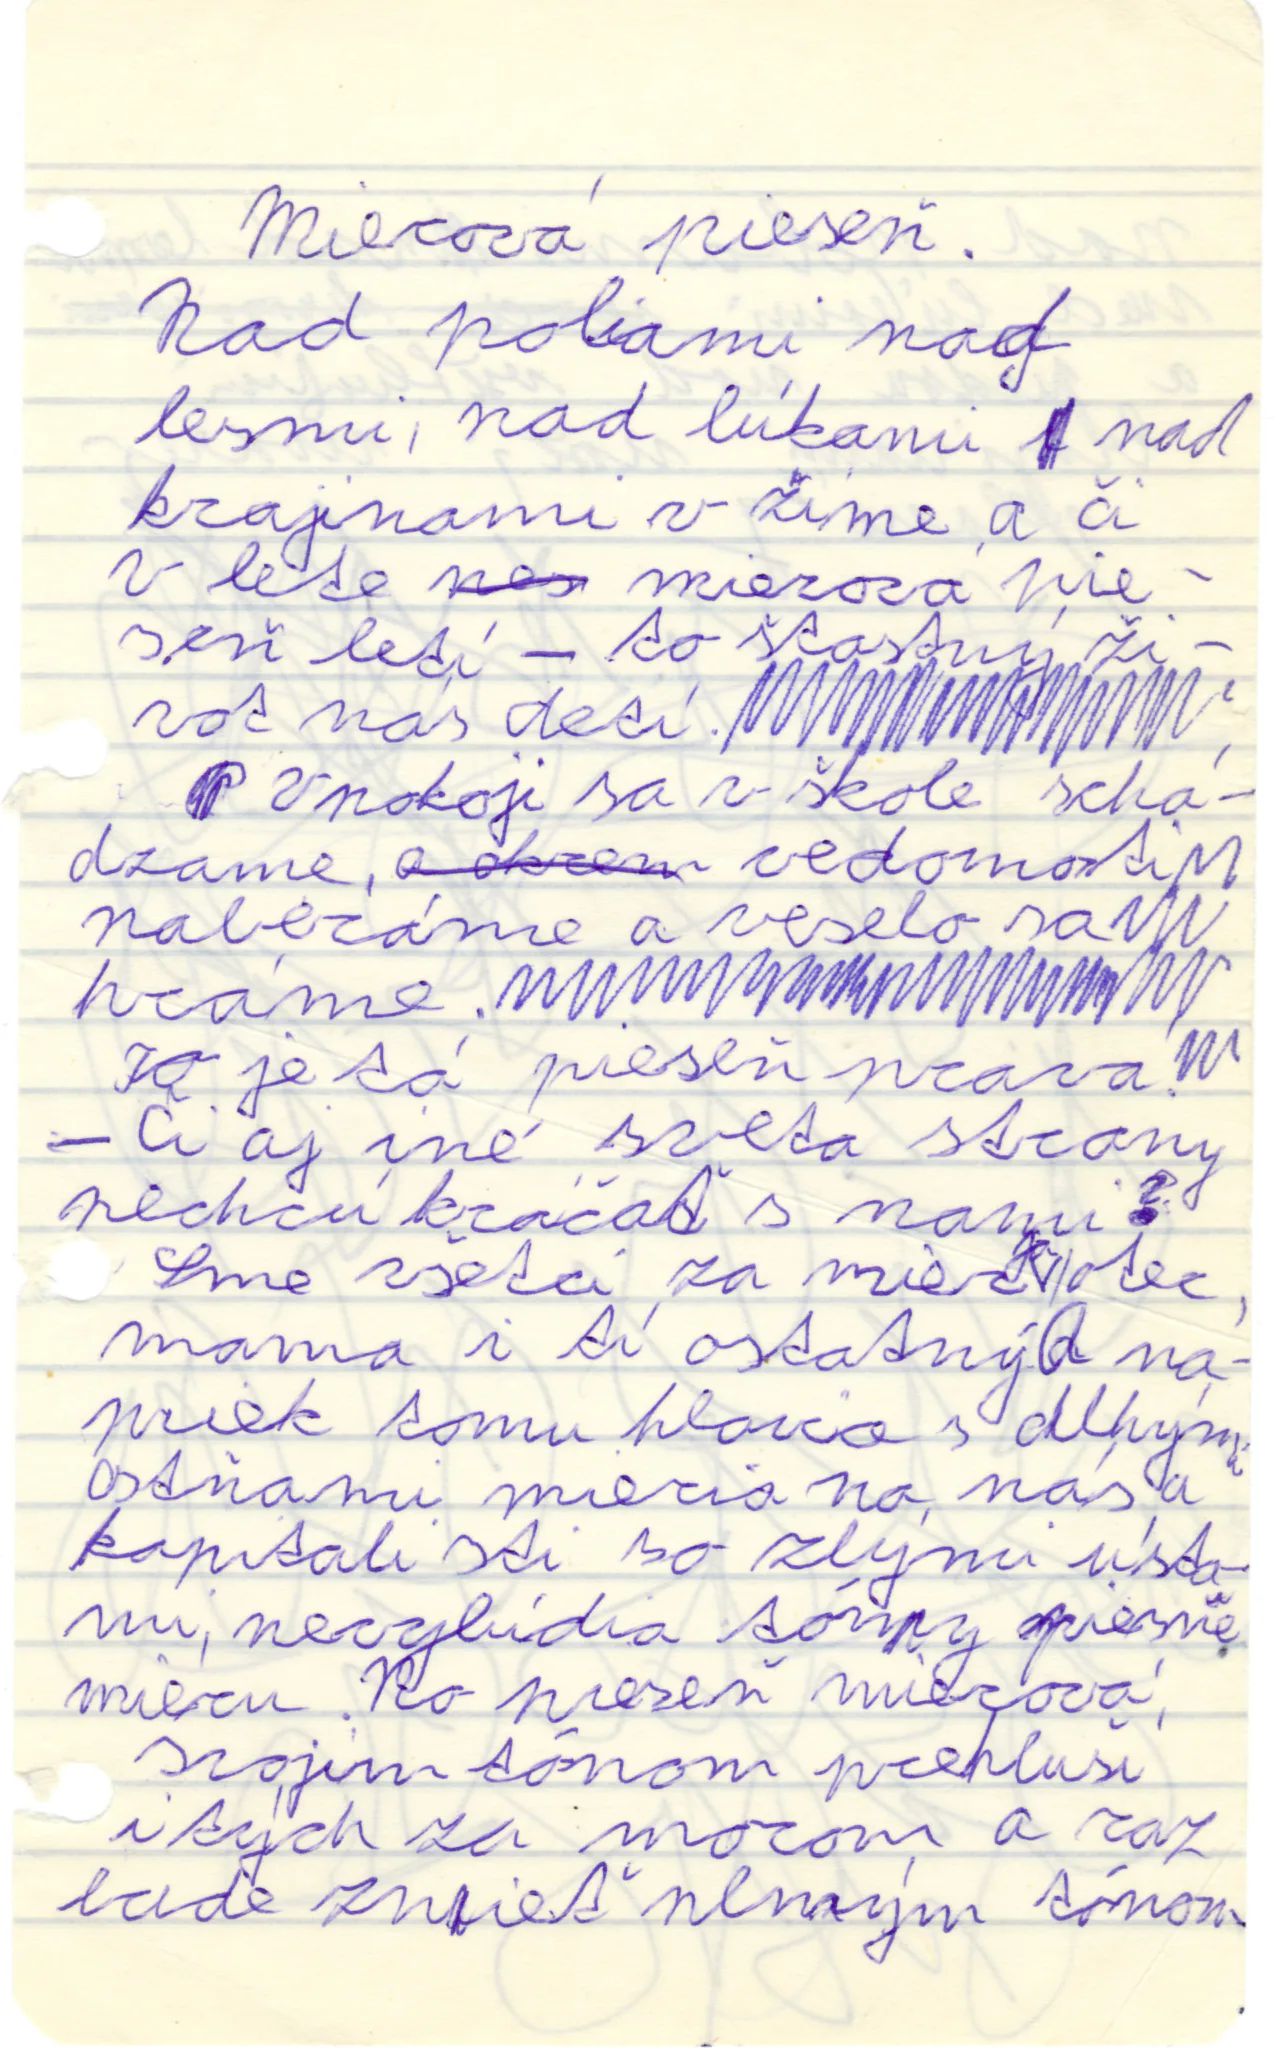 Mierová pieseň.
Nad poliami nad
lesmi, nad lúkami nad
krajinami v zime a či
v lete mierová pie-
seň letí – to štastný ži-
vot nás detí.
V pokoji sa v škole schá-
dzame, vedomosti
naberáme a veselo sa
hráme.
To je tá pieseň pravá.
– Či aj iné sveta strany
nechcú kráčať s nami?
Sme všetci za mier otec,
mama i tí ostatný ná-
priek tomu hlavice s dlhými
ostňami mieria na nás a
kapitalisti so zlými ústa-
mi, nevylúdia tóny piesne
mieru. No pieseň mierová,
svojim tónom prehluší
i tých za morom a raz
bude znieť plným tónom